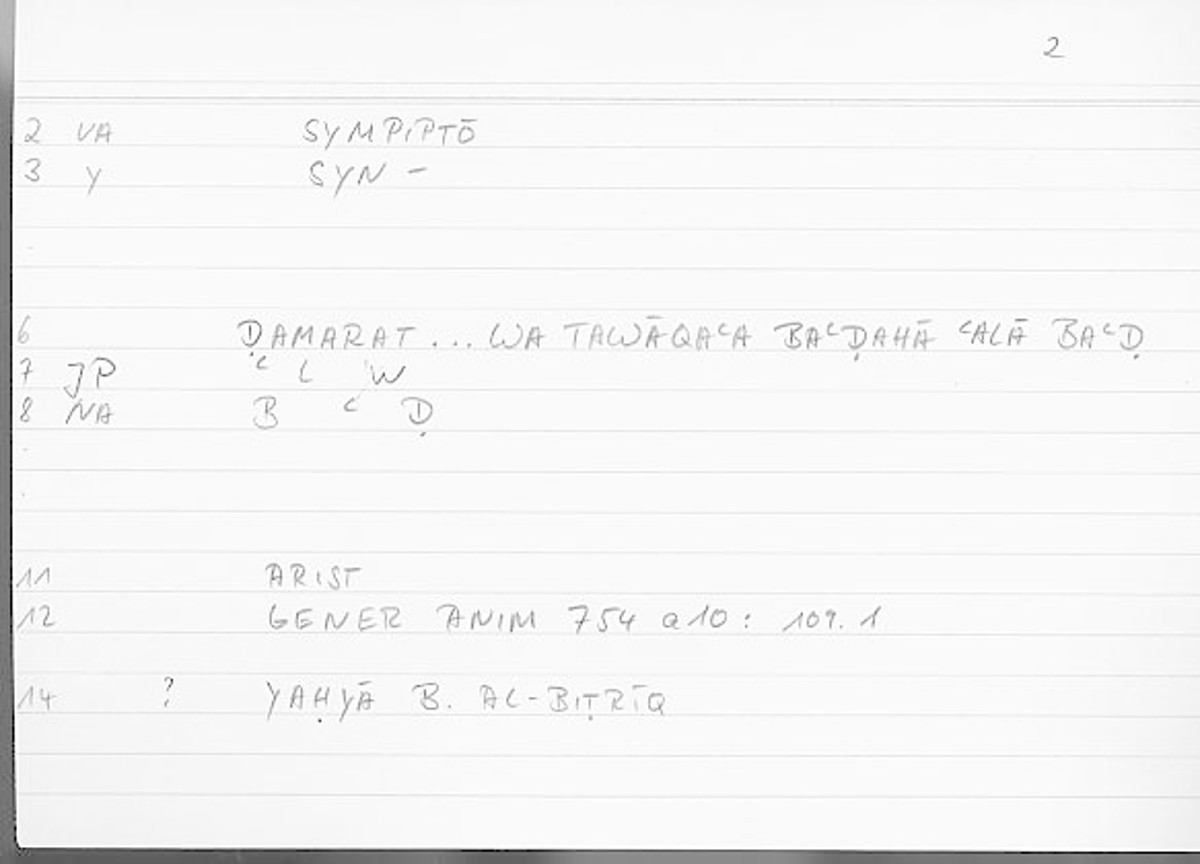 2
2 VA SYMPIPTŌ
3 Y SYN -
6 ḌAMARAT ... WA TAWĀQAʿA BAʿḌAHĀ ʿALĀ BAʿḌ
7 JP ʿ L W
8 NA B ʿ Ḍ
11 ARIST
12 GENER ANIM 754 a10 : 109. 1
14 ? YAḤYĀ B. AL-BIṬRĪQ